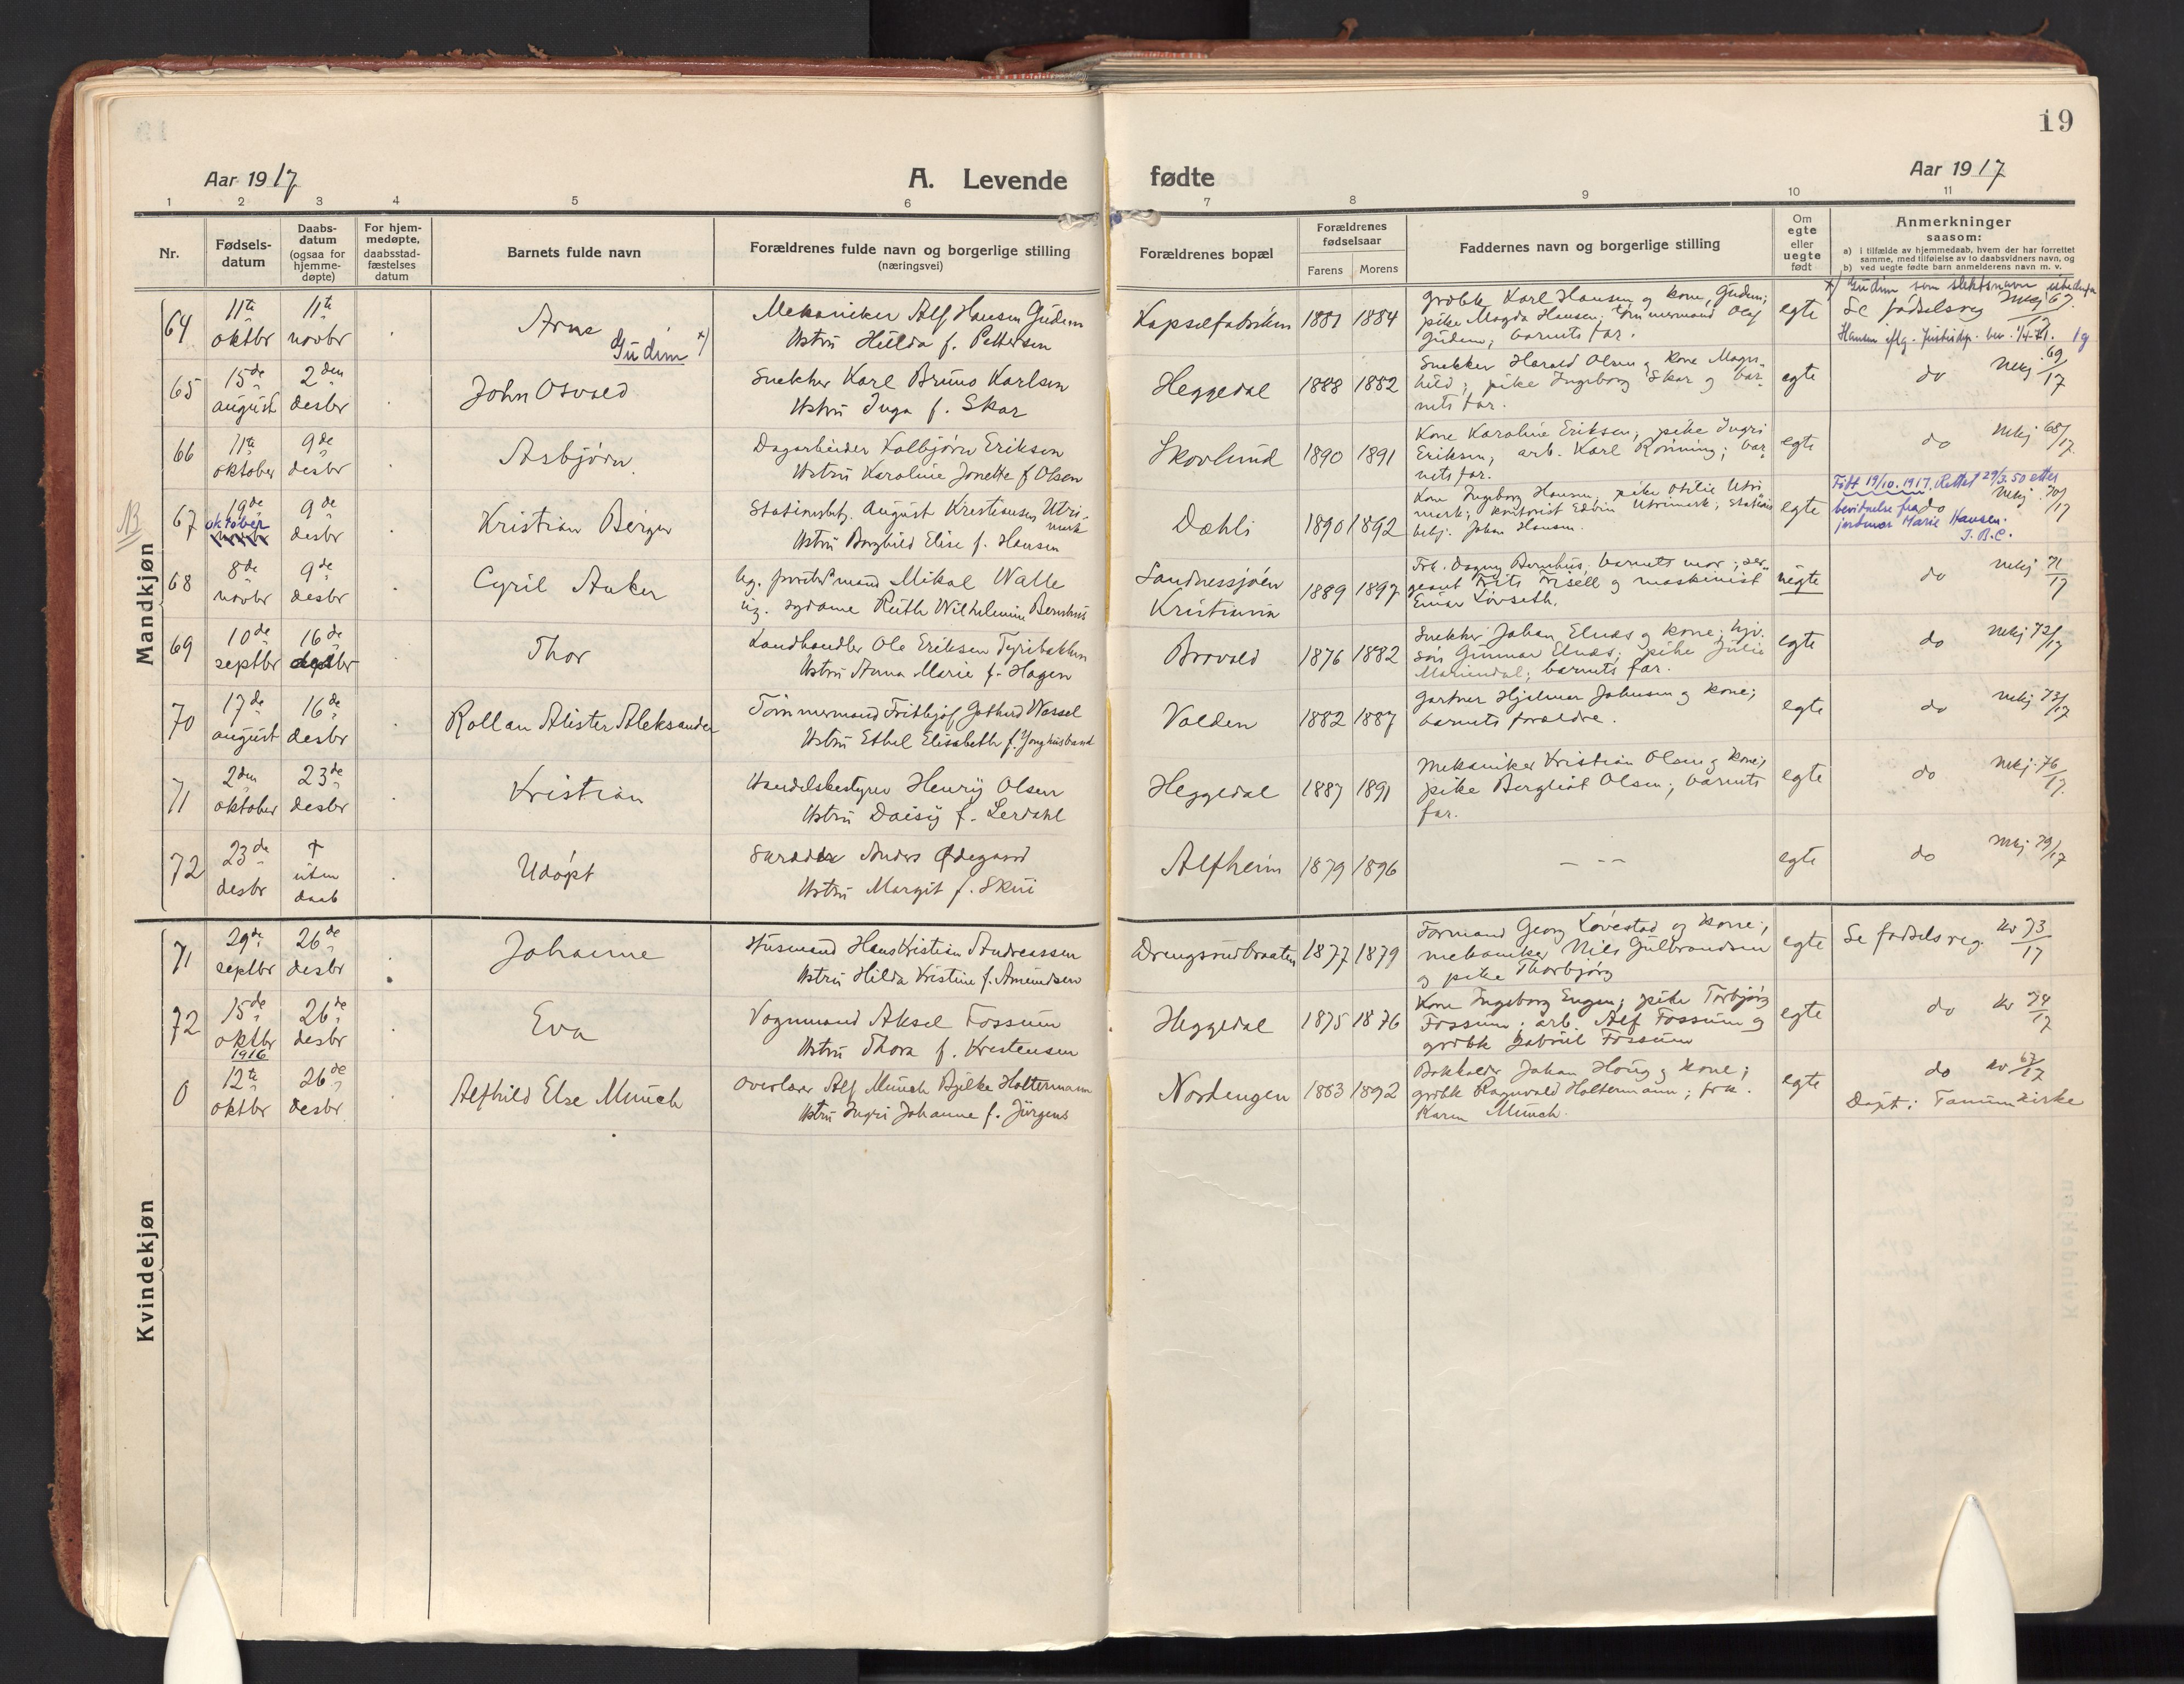 19
Aar 1917
A. Levende fødte
Aar 1917
1 2 3 4 5 6 7 8 9 10 11
Nr.
Fødsels-
datum
Daabs-
datum
(ogsaa for
hjemme-
døpte)
For hjem-
medøpte,
daabsstad-
fæstelses
datum
Barnets fulde navn
Forældrenes fulde navn og borgerlige stilling
(næringsvei)
Forældrenes bopæl
Forældrenes
fødselsaar
Farens Morens
Faddernes navn og borgerlige stilling
Om
egte
eller
uegte
født
Anmerkninger
saasom:
a) i tilfælde av hjemmedaab, hvem der har forrettet
samme, med tilføielse av to daabsvidners navn, og
b) ved uegte fødte barn anmelderens navn m. v.
Mandkjøn
64
11te
oktbr
11te
novbr
Arne
Gudim x)
Mekaniker Alf Hansen Gudem
Hstru Hilda f. Pettersen
Kapselfabriken
1881 1884
grdbk Karl Hansen og kone, Gudem;
pike Magda Hansen; tømmermand Olaf
Gudem; barnets far.
egte
x) Gudim som slektsnavn istedenfor
Se fødselsreg mkj 67/17
Hansen iflg. Justisdep. bev. 1/4-21.
65
15de
august
2den
desbr
John Osvald
Snekker Karl Bruno Karlsen
Hstru Inga f. Skar
Heggedal
1888 1882
Snekker Harald Olsen og kone Magn-
hild; pike Ingeborg Skar og bar-
nets far.
egte
do mkj 69/17
66
11te
oktober
9de
desbr
Asbjørn
Dagarbeider Kolbjørn Eriksen
Hstru Karoline Jonette f. Olsen
Skovlund
1890 1891
Kone Karoline Eriksen; pike Ingri
Eriksen; arb. Karl Rønning; bar-
nets far.
egte
do mkj 68/17
NB
67
19de
oktober
novbr
9de
desbr
Kristian Berger
Stationsbtj. August Kristiansen Utri-
mark
Hstru Borghild Elise f. Hansen
Dæhli
1890 1892
Kone Ingeborg Hansen, pike Otilie Utri
mark; kontorist Edvin Utrimark; stations
betj. Johan Hansen.
egte
Født 19/10.1917. Rettet 29/3.50 etter
bevidnelse fra do mkj 70/17
jordmor Marie Hansen.
J.B.C.
68
8de
novbr
9de
desbr
Cyril Anker
ug. sydame Ruth Wilhelmine Bernhus
Sandnessjøen
Kristiania
1889 1897
Frk. Dagny Bernhus, barnets mor; ser-
geant Frits Frisell og maskinist
Einar Løvseth.
uegte
do mkj 71/17
69
10de
septbr
16de
desbr
Thor
Landhandler Ole Eriksen Tyribakken
Hstru Anna Marie f. Hagen
Brovold
1876 1882
Snekker Johan Elnæs og kone; hjv.
søn Gunnar Elnæs; pike Julie
Mariendal; barnets far.
egte
do mkj 72/17
70
17de
august
16de
desbr
Rollan Alister Aleksander
Tømmermand Frithjof Gothard Wassel
Hstru Ethel Elisabeth f. Younghusband
Volden
1882 1887
Gartner Hjalmar Johnsen og kone;
barnets forældre.
egte
do mkj 73/17
71
2den
oktober
23de
desbr
Kristian
Handelsbestyrer Henry Olsen
Hstru Daisy f. Lerdahl
Heggedal
1887 1891
Mekaniker Kristian Olsen og kone;
pike Bergliot Olsen; barnets
far.
egte
do mkj 76/17
72
23de
desbr
†
uten
daab
Udøpt
Skrædder Anders Ødegaard
Hstru Margit f. Skui
Alfheim
1879 1896
— - -
egte
do mkj 79/17
Kvindekjøn
71
29de
septbr
26de
desbr
Johanne
Husmand Hans Kristian Andreassen
Hstru Hilda Kristine f. Amundsen
Drengsrudbraaten
1877 1879
Formand Georg Løvestad og kone;
mekaniker Nils Gulbrandsen
og pike Thorbjørg
egte
Se fødselsreg. kv 73/17
72
15de
oktbr
26de
desbr
Eva
Vognmand Aksel Fossum
Hstru Thora f. Kristensen
Heggedal
1875 1876
Kone Ingeborg Engen; pike Torbjørg
Fossum; arb. Alf Fossum og
grdbk Gabriel Fossum
egte
do kv 74/17
0
1916
12te
oktbr
26de
desbr
Alfhild Else Münch
Overlærer Alf Münch Bjelke Holtermann
Hstru Ingri Johanne f. Jürgens
Nordengen
1863 1892
Bokholder Johan Houg og kone;
grdbk Ragnvald Holtermann; frk.
Karen Münch.
egte
do kv 67/17
Døpt i Tanum kirke